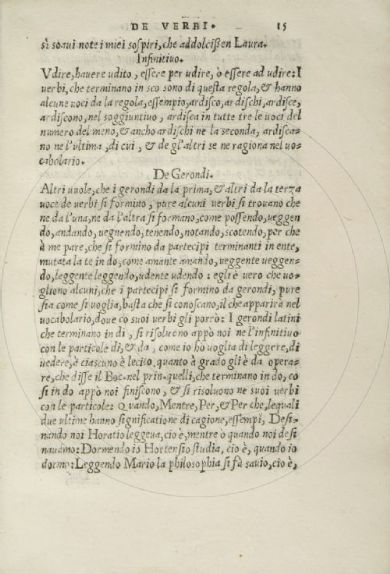 DE VERBI. 15
sì soavi note i miei sospiri, che addolcißen Laura.
Infinitivo.
Vdire, havere udito, eſſere per udire, ò eſſere ad udire: I
verbi, che terminano in ſco sono di queſta regola, & hanno
alcune voci da la regola, eſſempio, ardiſco, ardiſchi, ardiſce,
ardiſcono, nel ſoggiuntivo, ardiſca in tutte tre le voci del
numero del meno, & ancho ardiſchi ne la ſeconda, ardiſca-
no ne l'ultima, di cui, & de gl'altri ſe ne ragiona nel vo-
cabolario.
De Gerondi.
Altri vuole, che i gerondi da la prima, & altri da la terza
voce de verbi ſi formino, pure alcuni verbi ſi trovano che
ne da l'una, ne da l'altra ſi formano, come poſſendo, veggen
do, andando, vegnendo, tenendo, notando, ſcotendo, per che
à me pare, che ſi formino da partecipi terminanti in ente,
mutata la te in do; come amante amando, veggente veggen-
do, leggente leggendo, udente udendo: egli è vero che vo-
gliono alcuni, che i partecipi ſi formino da gerondi, pure
ſta come ſi voglia, baſta che ſi conoſcano, il che apparirà nel
vocabolario, dove cò ſuoi verbi gli porrò: I gerondi latini
che terminano in di, ſi riſolveno appò noi ne l'infinitivo
con le particole di, & da, come io ho voglia di leggere, di
vedere, è ciaſcuno è lecito quanto à grado gli è da opera-
re, che diſſe il Boc. nel prin. quelli, che terminano in do, co
ſi in do appò noi finiſcono, & ſi riſolveno ne ſuoi verbi
con le particole: Quando, Mentre, Per, & Per che, lequali
due ultime hanno ſignificatione di cagione, eſſempi, Deſi-
nando noi Horatio leggeva, cio è, mentre ò quando noi deſi
navamo: Dormendo io Hortenſio ſtudia, cio è, quando io
dormo: Leggendo Mario la philoſophia ſi fà ſavio, cio è,